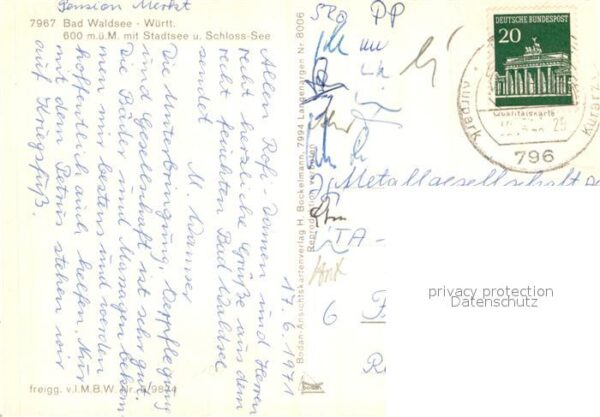 Pension Merkt
7967 Bad Waldsee - Württ.
600 m.ü.M. mit Stadtsee u. Schloss-See
17.6.1971
Allen Rofi-Damen und Herren
recht herzliche Grüße aus dem
recht feuchten Bad Waldsee
sendet
M. Wanner
Die Unterbringung, Verpflegung
und Gesellschaft ist sehr gut.
Die Bäder und Massagen bekom-
men mir bestens und werden
hoffentlich auch helfen. Nur
mit dem Petrus stehen wir
auf Kriegsfuß.
freigg. v.I.M.B.W. Nr.
Bodan-Ansichtskartenverlag H. Bockelmann, 7994 Langenargen Nr 8006
Reproduction verboten
PP
DEUTSCHE BUNDESPOST
20
796
Metallgesellschaft
TA-
6
privacy protection
Datenschutz